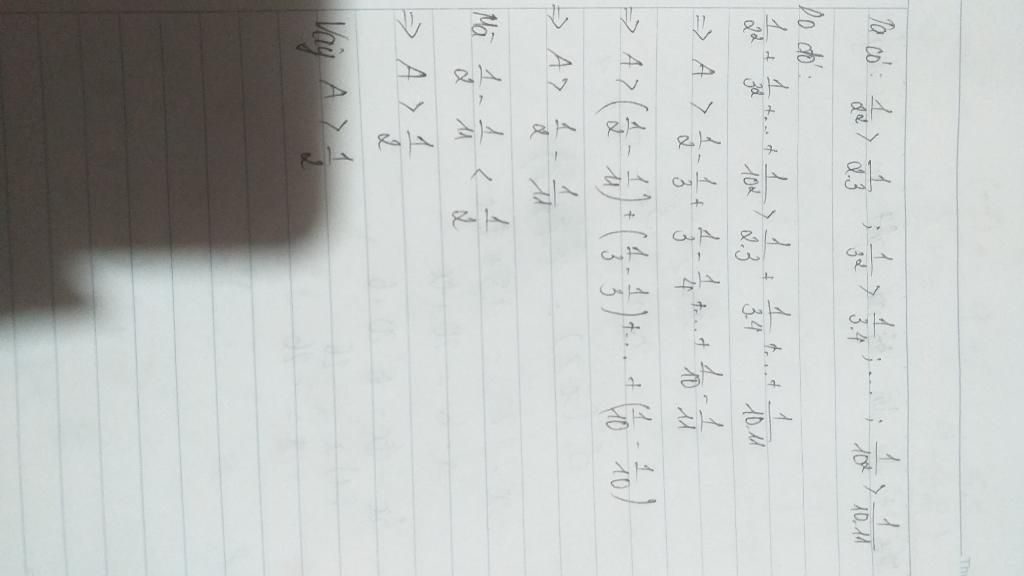 Ta có: 1/2² > 1/2.3 ; 1/3² > 1/3.4 ; .... ; 1/10² > 1/10.11
Do đó:
1/2² + 1/3² +...+ 1/10² > 1/2.3 + 1/3.4 +...+ 1/10.11
=> A > 1/2 - 1/3 + 1/3 - 1/4 +...+ 1/10 - 1/11
=> A > (1/2 - 1/11) + (1/3 - 1/3) +.... + (1/10 - 1/10)
=> A > 1/2 - 1/11
Mà 1/2 - 1/11 < 1/2
=> A > 1/2
Vậy A > 1/2